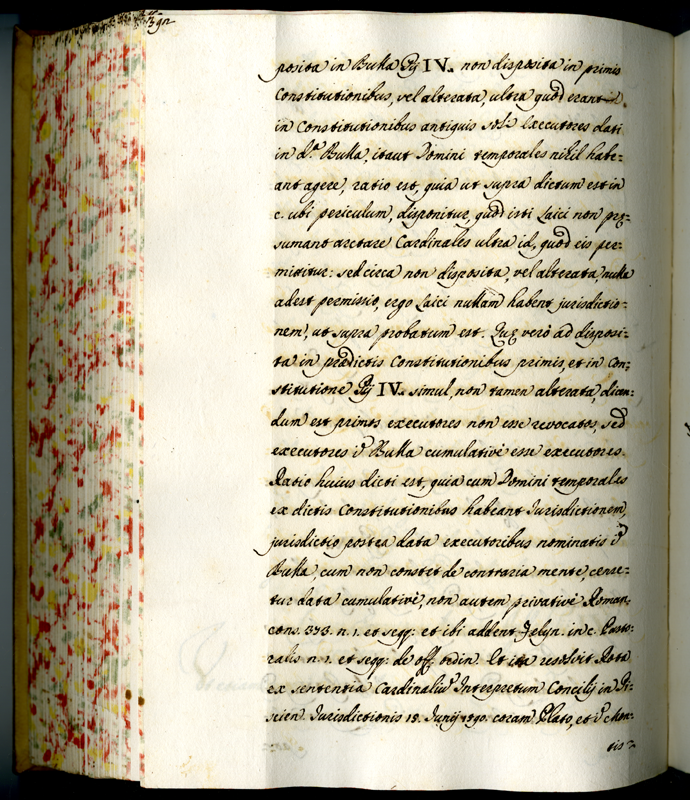 posita in Bulla Pij IV. non disposita in primis
Constitutionibus, vel alterata, ultra quod erant
in Constitutionibus antiquis soli executores dati
in d.ᵃ Bulla, itaut Domini temporales nihil habe=
ant agere, ratio est, quia ut supra dictum est in
c. ubi periculum, disponitur, quod isti Laici non prę=
sumant arctare Cardinales ultra id, quod eis per=
mittitur: sed circa non disposita, vel alterata, nulla
adest permissio, ergo Laici nullam habent jurisdictio=
nem, ut supra probatum est. Quę verò ad disposi=
ta in prædictis Constitutionibus primis, et in Con=
stitutione Pij IV. simul, non tamen alterata, dicen=
dum est primos executores non esse revocatos, sed
executores Bulla cumulativè esse executores.
Ratio huius dicti est, quia cum Domini temporales
ex dictis Constitutionibus habeant Jurisdictionem,
jurisdictio postea data executoribus nominatis
Bulla, cum non constet de contraria mente, cense=
tur data cumulativè, non autem privativè Roman.
cons. 373. n. 1. et seqq: et ibi addent Felyn. in c. Pasto=
ralis n. 1. et seqq: de off. ordin. Et ita resolvit Rota
ex sententia Cardinaliũ Interpretum Concilij in
scien. Jurisdictionis 15. Junij 1590. coram Plato, et
tis